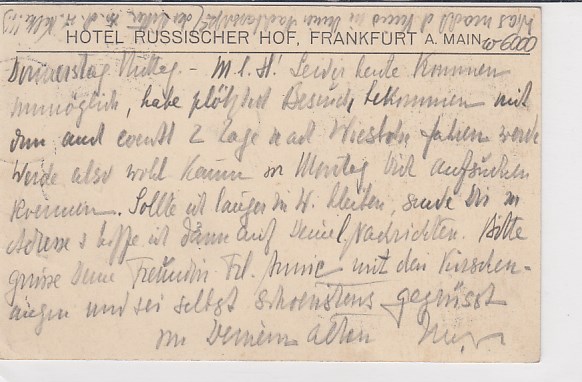 HOTEL RUSSISCHER HOF, FRANKFURT A. MAIN
Donnerstag Mittag. - M. l. H! Leider heute Kommen
unmöglich, habe plötzlich Besuch bekommen mit
dem auch eventl 2 Tage nach Wiesbden fahren werde
Werde also wohl kaum vor Montag Dich aufsuchen
koennen. Sollte ich länger in W. bleiben, sende Dir m
Adresse & hoffe ich dann auf Deine Nachrichten. Bitte
grüsse Deine Freundin Frl. mit den Kirschen-
augen und sei selbst schoenstens gegrüsst
von Deinem alten